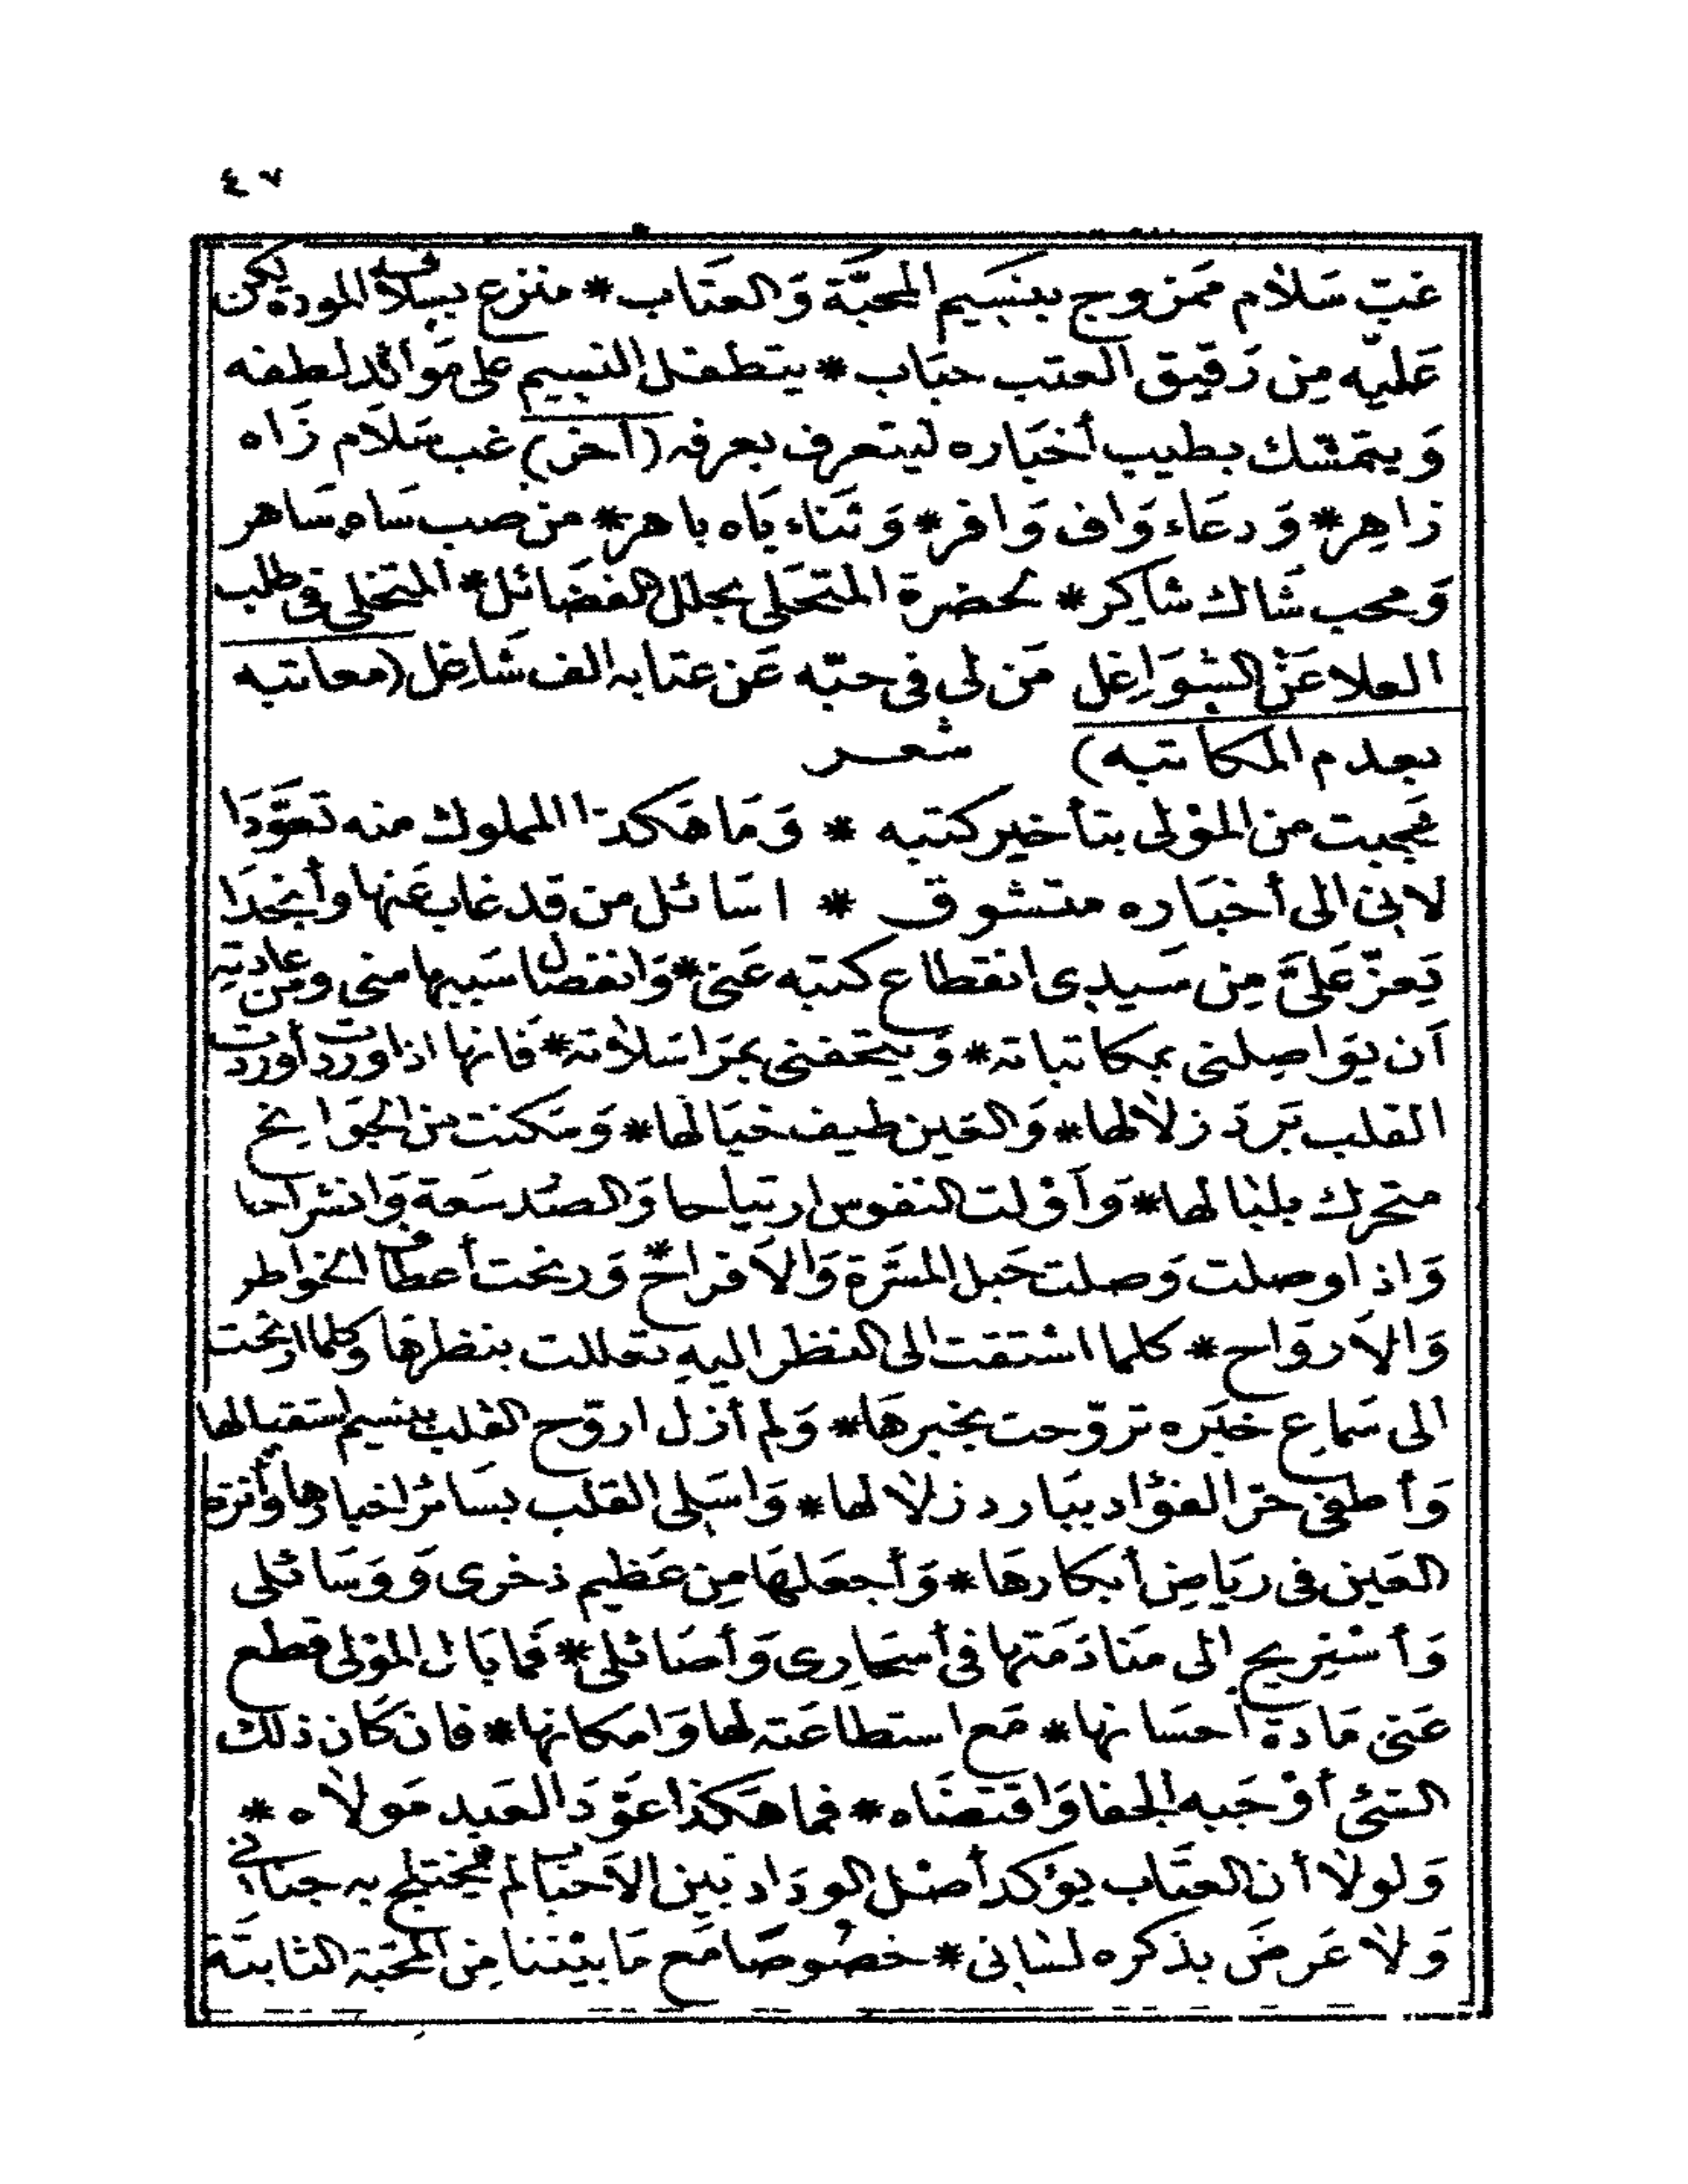 ٤٧
غبّ سَلام مَمزوج بنسيم المحبَّة وَالعتَاب * منزع بسلافة المودة لكن
عَليه مِن رَقيق العتب حبَاب * يتطفل النسيم على مَوائد لطفه
وَيتمسّك بطيب أخبَاره ليتعرف بعرفه (آخر) غب سَلَام زَاه
زاهِر * وَدعَاء وَاف وَافر * وَثنَاء بَاه باهر * من صب سَاه سَاهر
وَمحب شَاك شاكِر * لحضرة المتحَلى بحلل الفضَائل * المتخلى فى طلب
العلا عَن الشوَاغِل مَن لى فى حبّه عَن عتابه الف شَاغِل (معاتبه
بعدم المكاتبه) شعر
عجبت من المَوْلى بتأخير كتبه * وَمَا هَكذا المملوك منه تعَوّدَا
لانى الى أخبَاره متشوق * اسَائل من قد غاب عَنها وأنجدَا
يَعزّ عَليَّ مِن سَيدِى انقطاع كتبه عَنى * وَانفصال سَببها منى ومن عادته
أن يوَاصِلنى بمكاتباته * وَيتحفنى بمرَاسَلاته * فَانها اذا وردت أوردت
القلب بَرد زلالها * وَالعَين طيف خيَالها * وَسَكنت من الجَوانح
متحرك بلبالها * وَأوْلت النفوس ارتياحا وَالصّدر سَعة وَانشراحا
وَاذا وصلت وَصلت حَبل المسَرة وَالأفراح * وَرنحت أعطاف الخواطر
وَالأروَاح * كلما اشتقت الى النظر اليهِ تعللت بنظرهَا وكلما ارتحت
الى سَماع خبَره تروّحت بخبرهَا * وَلم أزل اروّح القلب بنسيم استقبالها
وَأطفى حرّ الفؤاد ببَارد زلالها * وَاسَلى القلب بسَائر اخبارها وأنزه
العَين فى ريَاض أبكارهَا * وَأجعَلهَا مِن عَظيم ذخرى وَوَسَائلى
وَأستريح الى منَادَمَتها فى أسحارى وَأصَائلى * فمَا بَال المَوْلى قطع
عَنى مَادة احسَانها * مَع استطاعَته لها وَامكانها * فان كَان ذلك
لشئ أوْجَبه الجفا وَاقتضَاه * فما هَكذا عَوّدَ العَبد مَولاه *
وَلولا أن العتَاب يؤكد أصْل الودَاد بَين الأحبَاب لم يختلج به جنانى
وَلا عَرضَ بذكره لسانى * خصُوصًا مَع مَا بيْننا مِن المحَبة الثابتَة